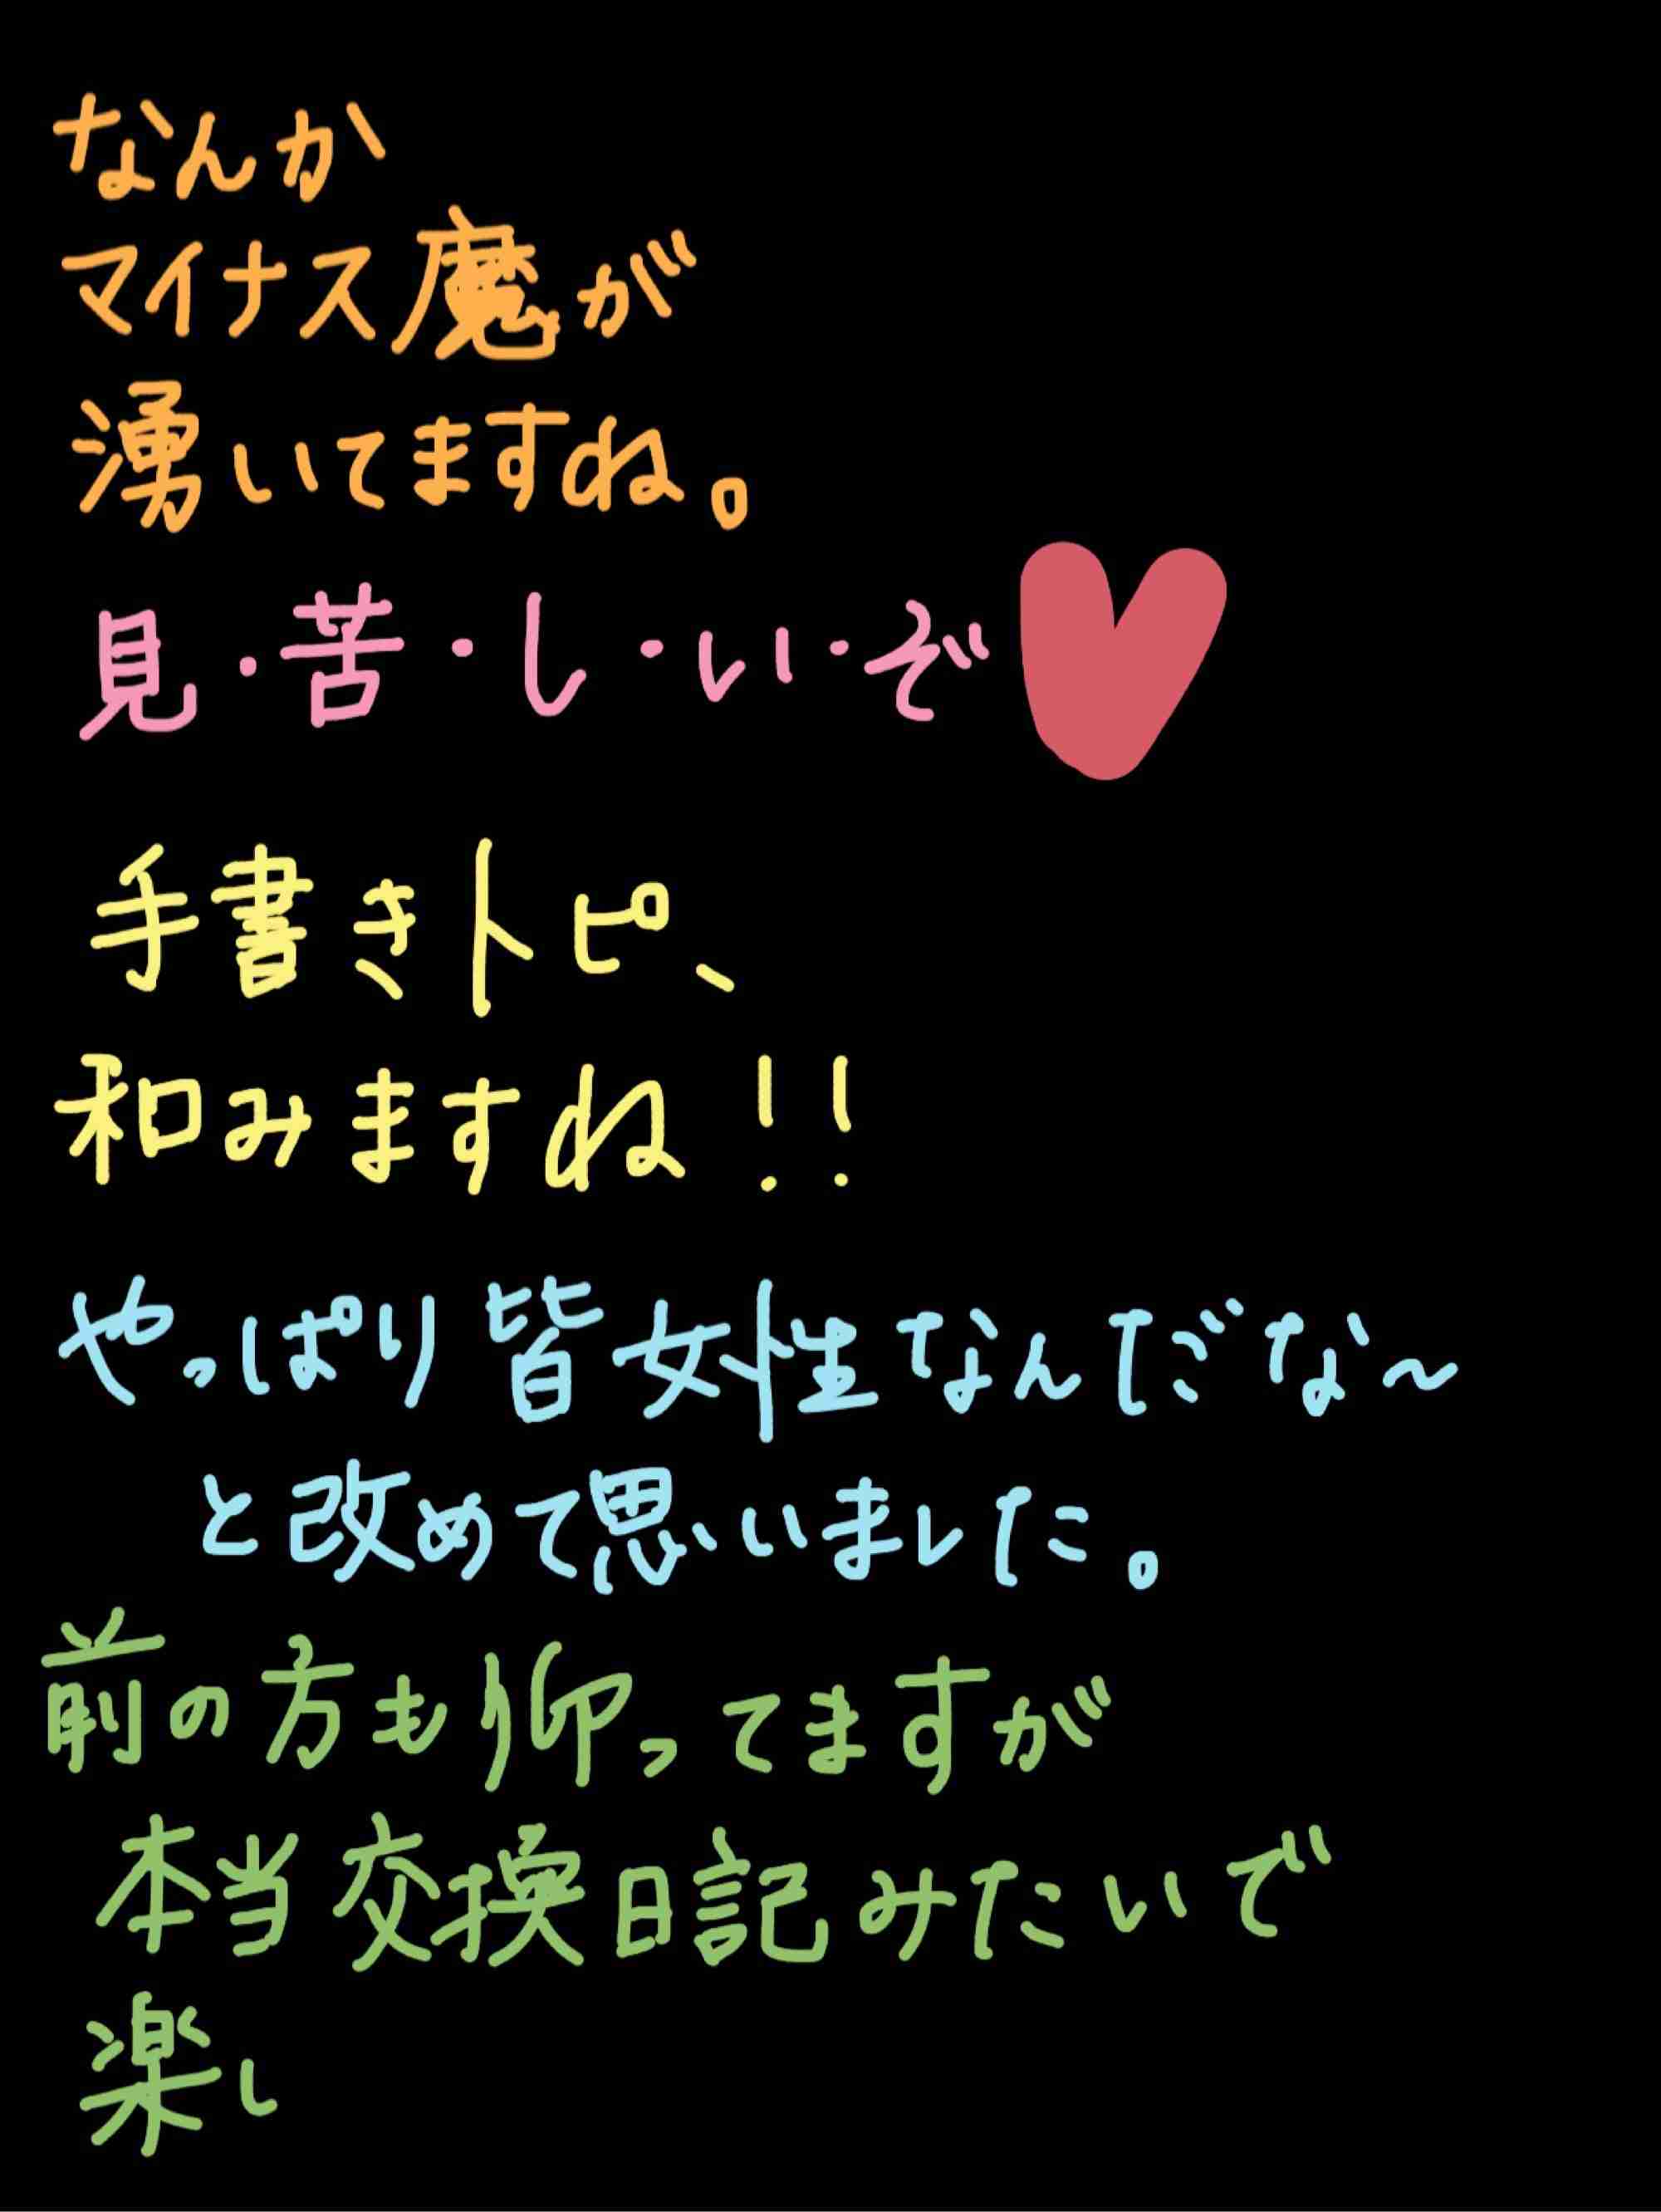 なんか
マイナス魔が
湧いてますね。
見・苦・し・い・ぞ♥
手書きトピ、
和みますね!!
やっぱり皆女性なんだな〜
と改めて思いました。
前の方も仰ってますが
本当交換日記みたいで
楽し